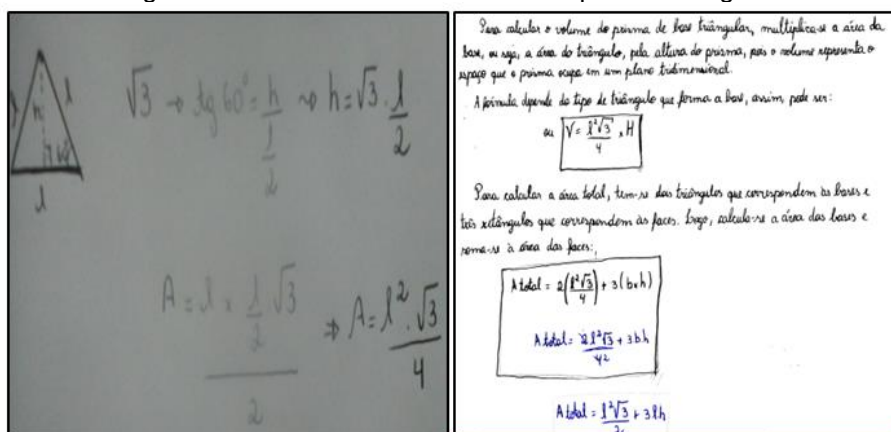 l
h
60°
l
√3 → tg 60° = h/(l/2) → h = √3 · l/2
A = (l × l/2 · √3)/2 ⇒ A = l² · √3/4
Para calcular o volume do prisma de base triângular, multiplica-se a área da
base, ou seja, a área do triângulo, pela altura do prisma, pois o volume representa o
espaço que o prisma ocupa em um plano tridimensional.
A fórmula depende do tipo de triângulo que forma a base, assim, pode ser:
ou V = l²√3/4 × H
Para calcular a área total, tem-se dois triângulos que correspondem às bases e
três retângulos que correspondem às faces. Logo, calcula-se a área das bases e
soma-se à área das faces:
A total = 2(l²√3/4) + 3(b×h)
A total = 2l²√3/42 + 3bh
A total = l²√3/2 + 3lh